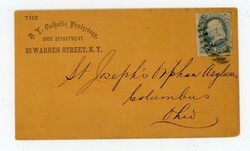 THE
N. Y. Catholic Protectory,
SHOE DEPARTMENT,
33 WARREN STREET, N. Y.
St Joseph's Orphan Asylum
Columbus
Ohio